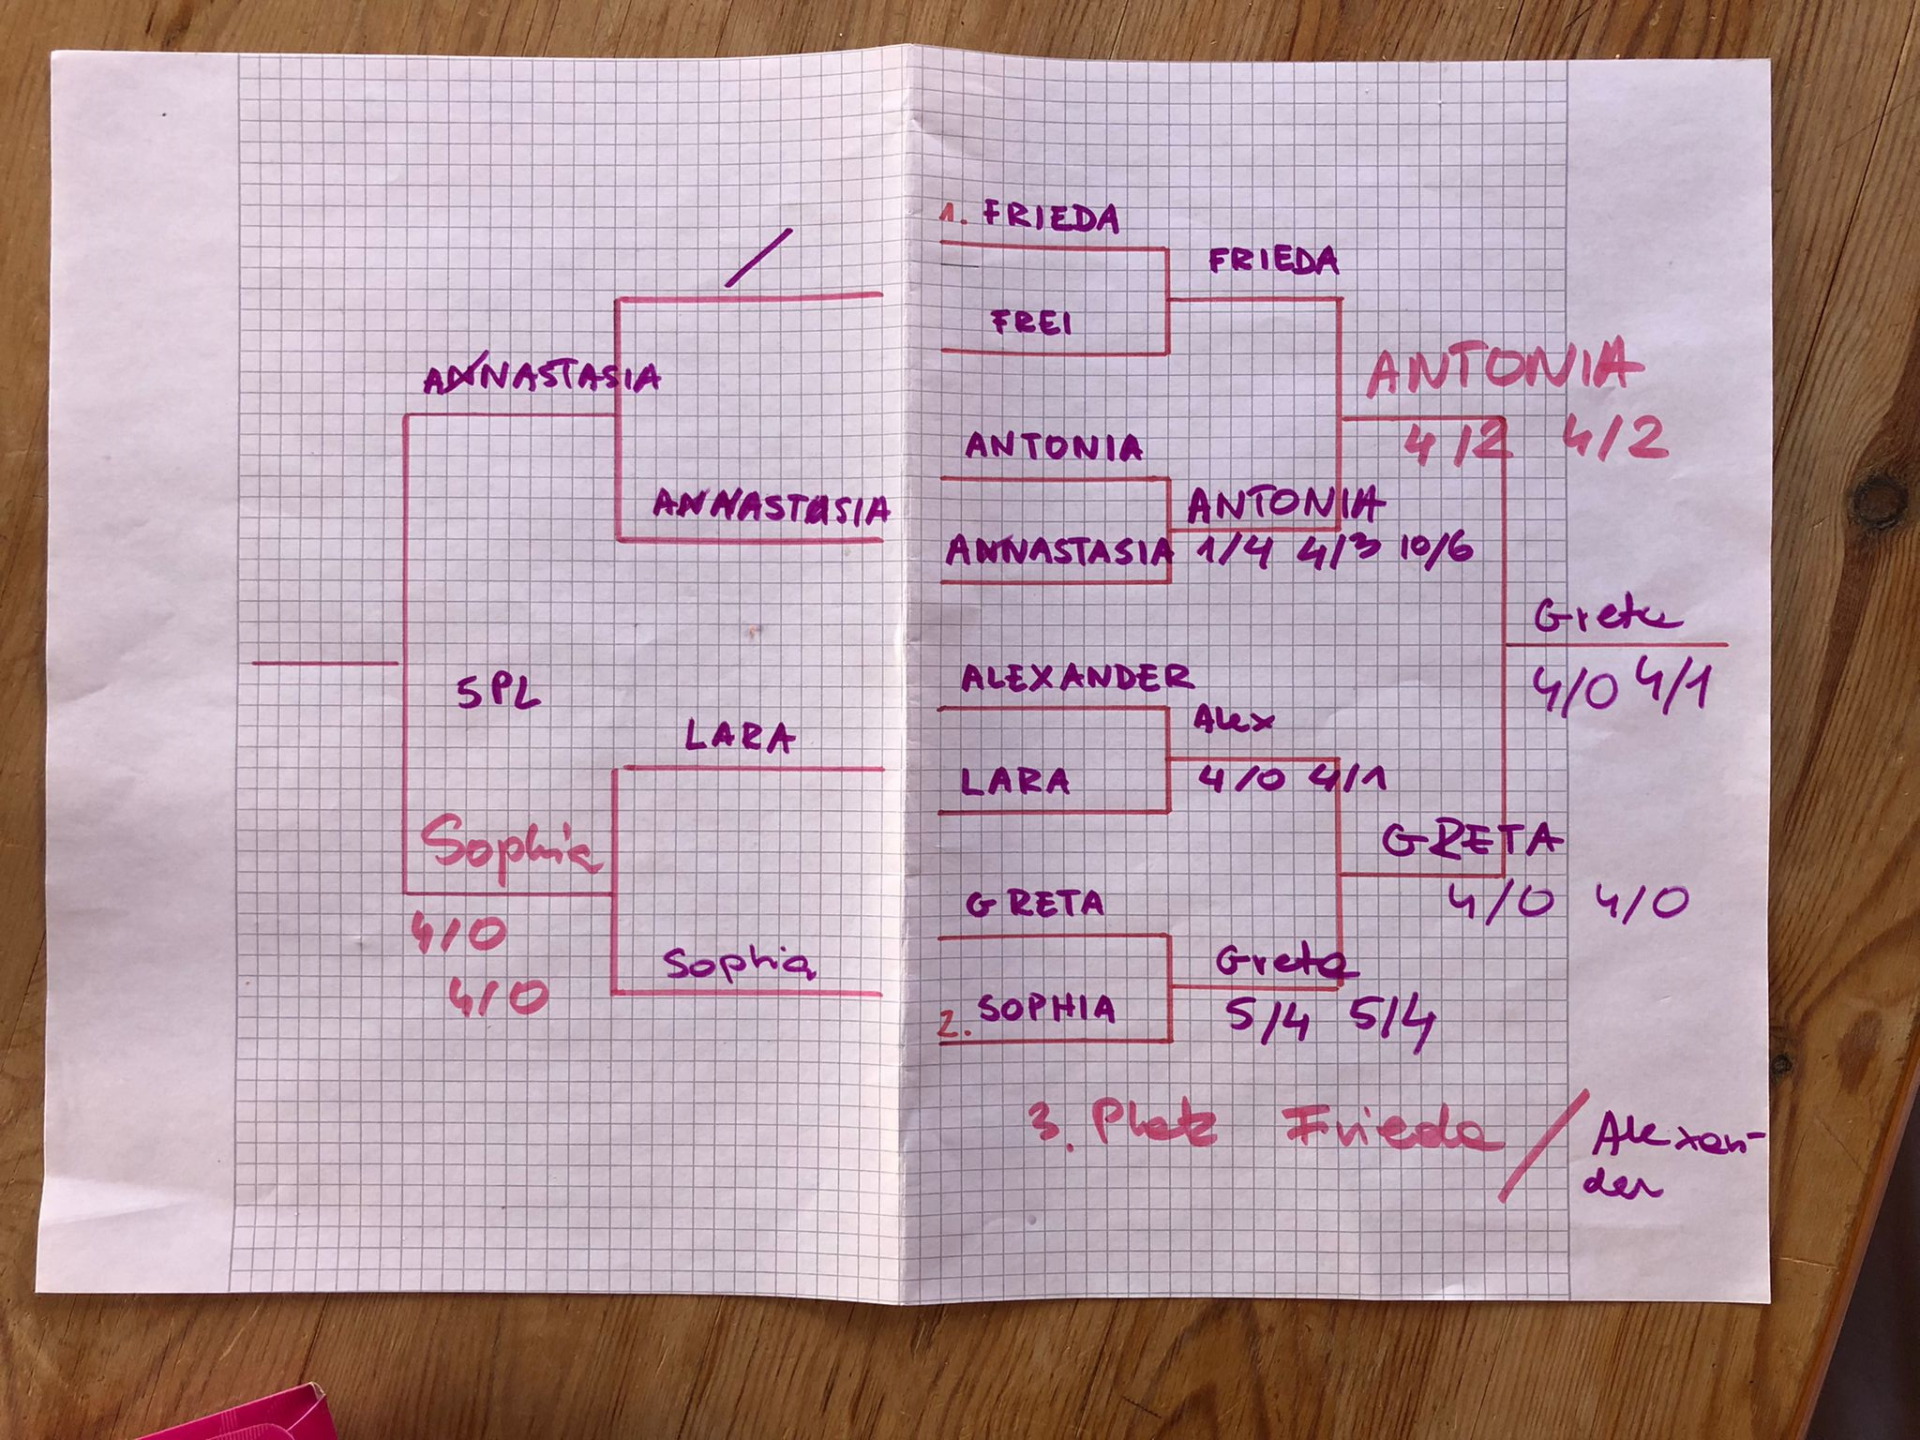 ANNASTASIA
ANNASTASIA
5PL
LARA
Sophia
4/0
4/0
Sophia
1. FRIEDA
FRIEDA
FREI
ANTONIA
4/2 4/2
ANTONIA
ANTONIA
ANNASTASIA 1/4 4/3 10/6
Greta
4/0 4/1
ALEXANDER
Alex
LARA 4/0 4/1
GRETA
4/0 4/0
GRETA
Greta
2. SOPHIA 5/4 5/4
3. Platz Frieda / Alexan-
der